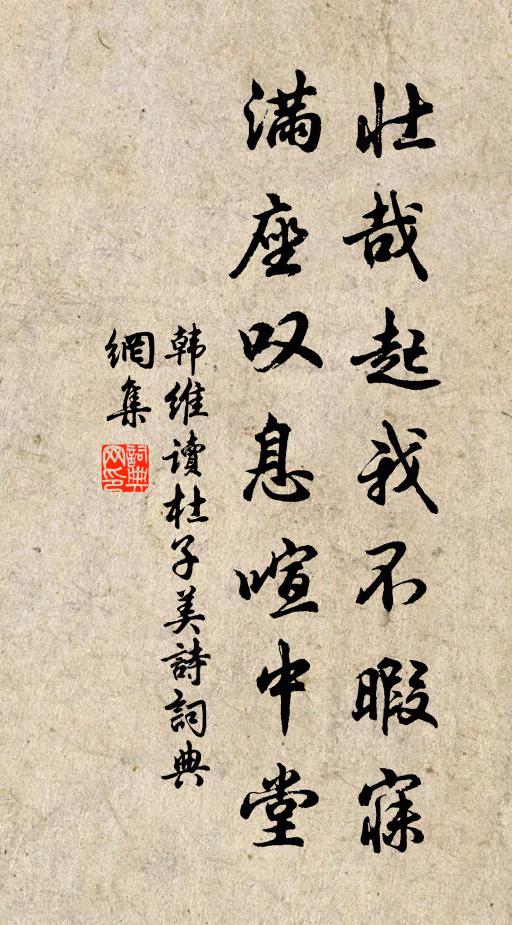 壯哉起我不暇寐
满座叹息喧中堂
韩维读杜子美詩詞典
網集
詞典网印